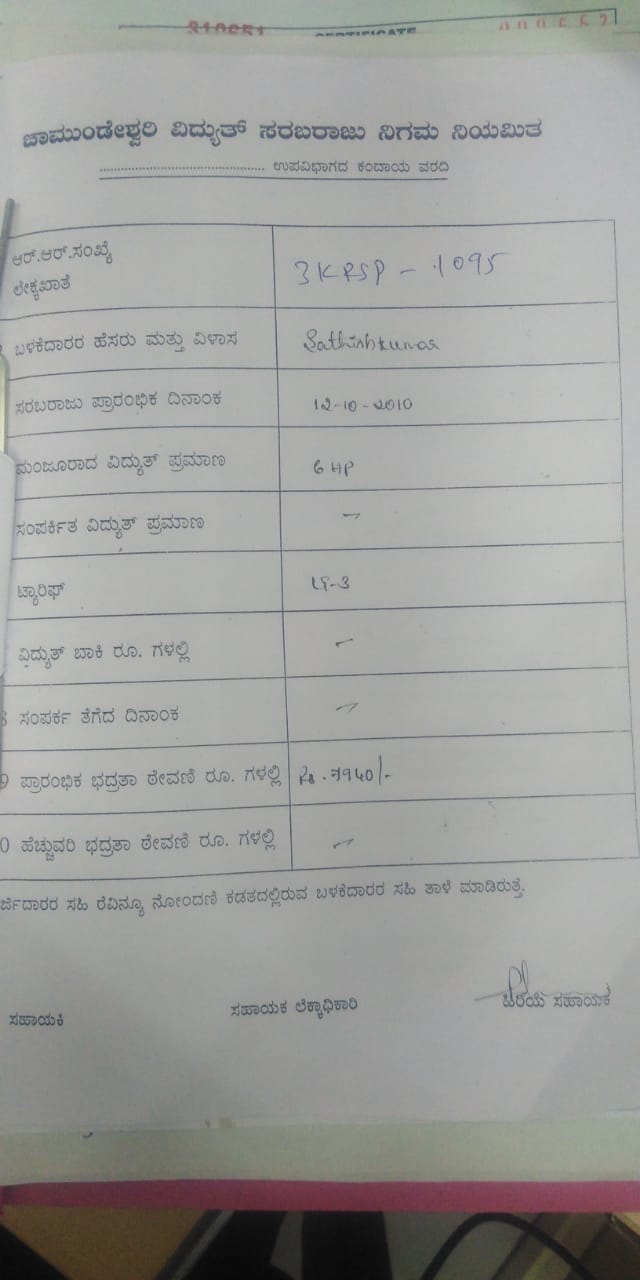 310651 CERTIFICATE 000652
ಚಾಮುಂಡೇಶ್ವರಿ ವಿದ್ಯುತ್ ಸರಬರಾಜು ನಿಗಮ ನಿಯಮಿತ
.................................................. ಉಪವಿಭಾಗದ ಕಂದಾಯ ವರದಿ
ಆರ್.ಆರ್.ಸಂಖ್ಯೆ
ಲೆಕ್ಕಖಾತೆ
3KRSP - 1095
ಬಳಕೆದಾರರ ಹೆಸರು ಮತ್ತು ವಿಳಾಸ Sathishkumar
ಸರಬರಾಜು ಪ್ರಾರಂಭಿಕ ದಿನಾಂಕ 12-10-2010
ಮಂಜೂರಾದ ವಿದ್ಯುತ್ ಪ್ರಮಾಣ 6 HP
ಸಂಪರ್ಕಿತ ವಿದ್ಯುತ್ ಪ್ರಮಾಣ -
ಟ್ಯಾರಿಫ್
ವಿದ್ಯುತ್ ಬಾಕಿ ರೂ. ಗಳಲ್ಲಿ -
8 ಸಂಪರ್ಕ ತೆಗೆದ ದಿನಾಂಕ -
9 ಪ್ರಾರಂಭಿಕ ಭದ್ರತಾ ಠೇವಣಿ ರೂ. ಗಳಲ್ಲಿ Rs. 7940/-
0 ಹೆಚ್ಚುವರಿ ಭದ್ರತಾ ಠೇವಣಿ ರೂ. ಗಳಲ್ಲಿ -
ರ್ಜಿದಾರರ ಸಹಿ ರೆವಿನ್ಯೂ ನೋಂದಣಿ ಕಡತದಲ್ಲಿರುವ ಬಳಕೆದಾರರ ಸಹಿ ತಾಳೆ ಮಾಡಿರುತ್ತೆ.
ಸಹಾಯಕಿ ಸಹಾಯಕ ಲೆಕ್ಕಾಧಿಕಾರಿ ಹಿರಿಯ ಸಹಾಯಕ